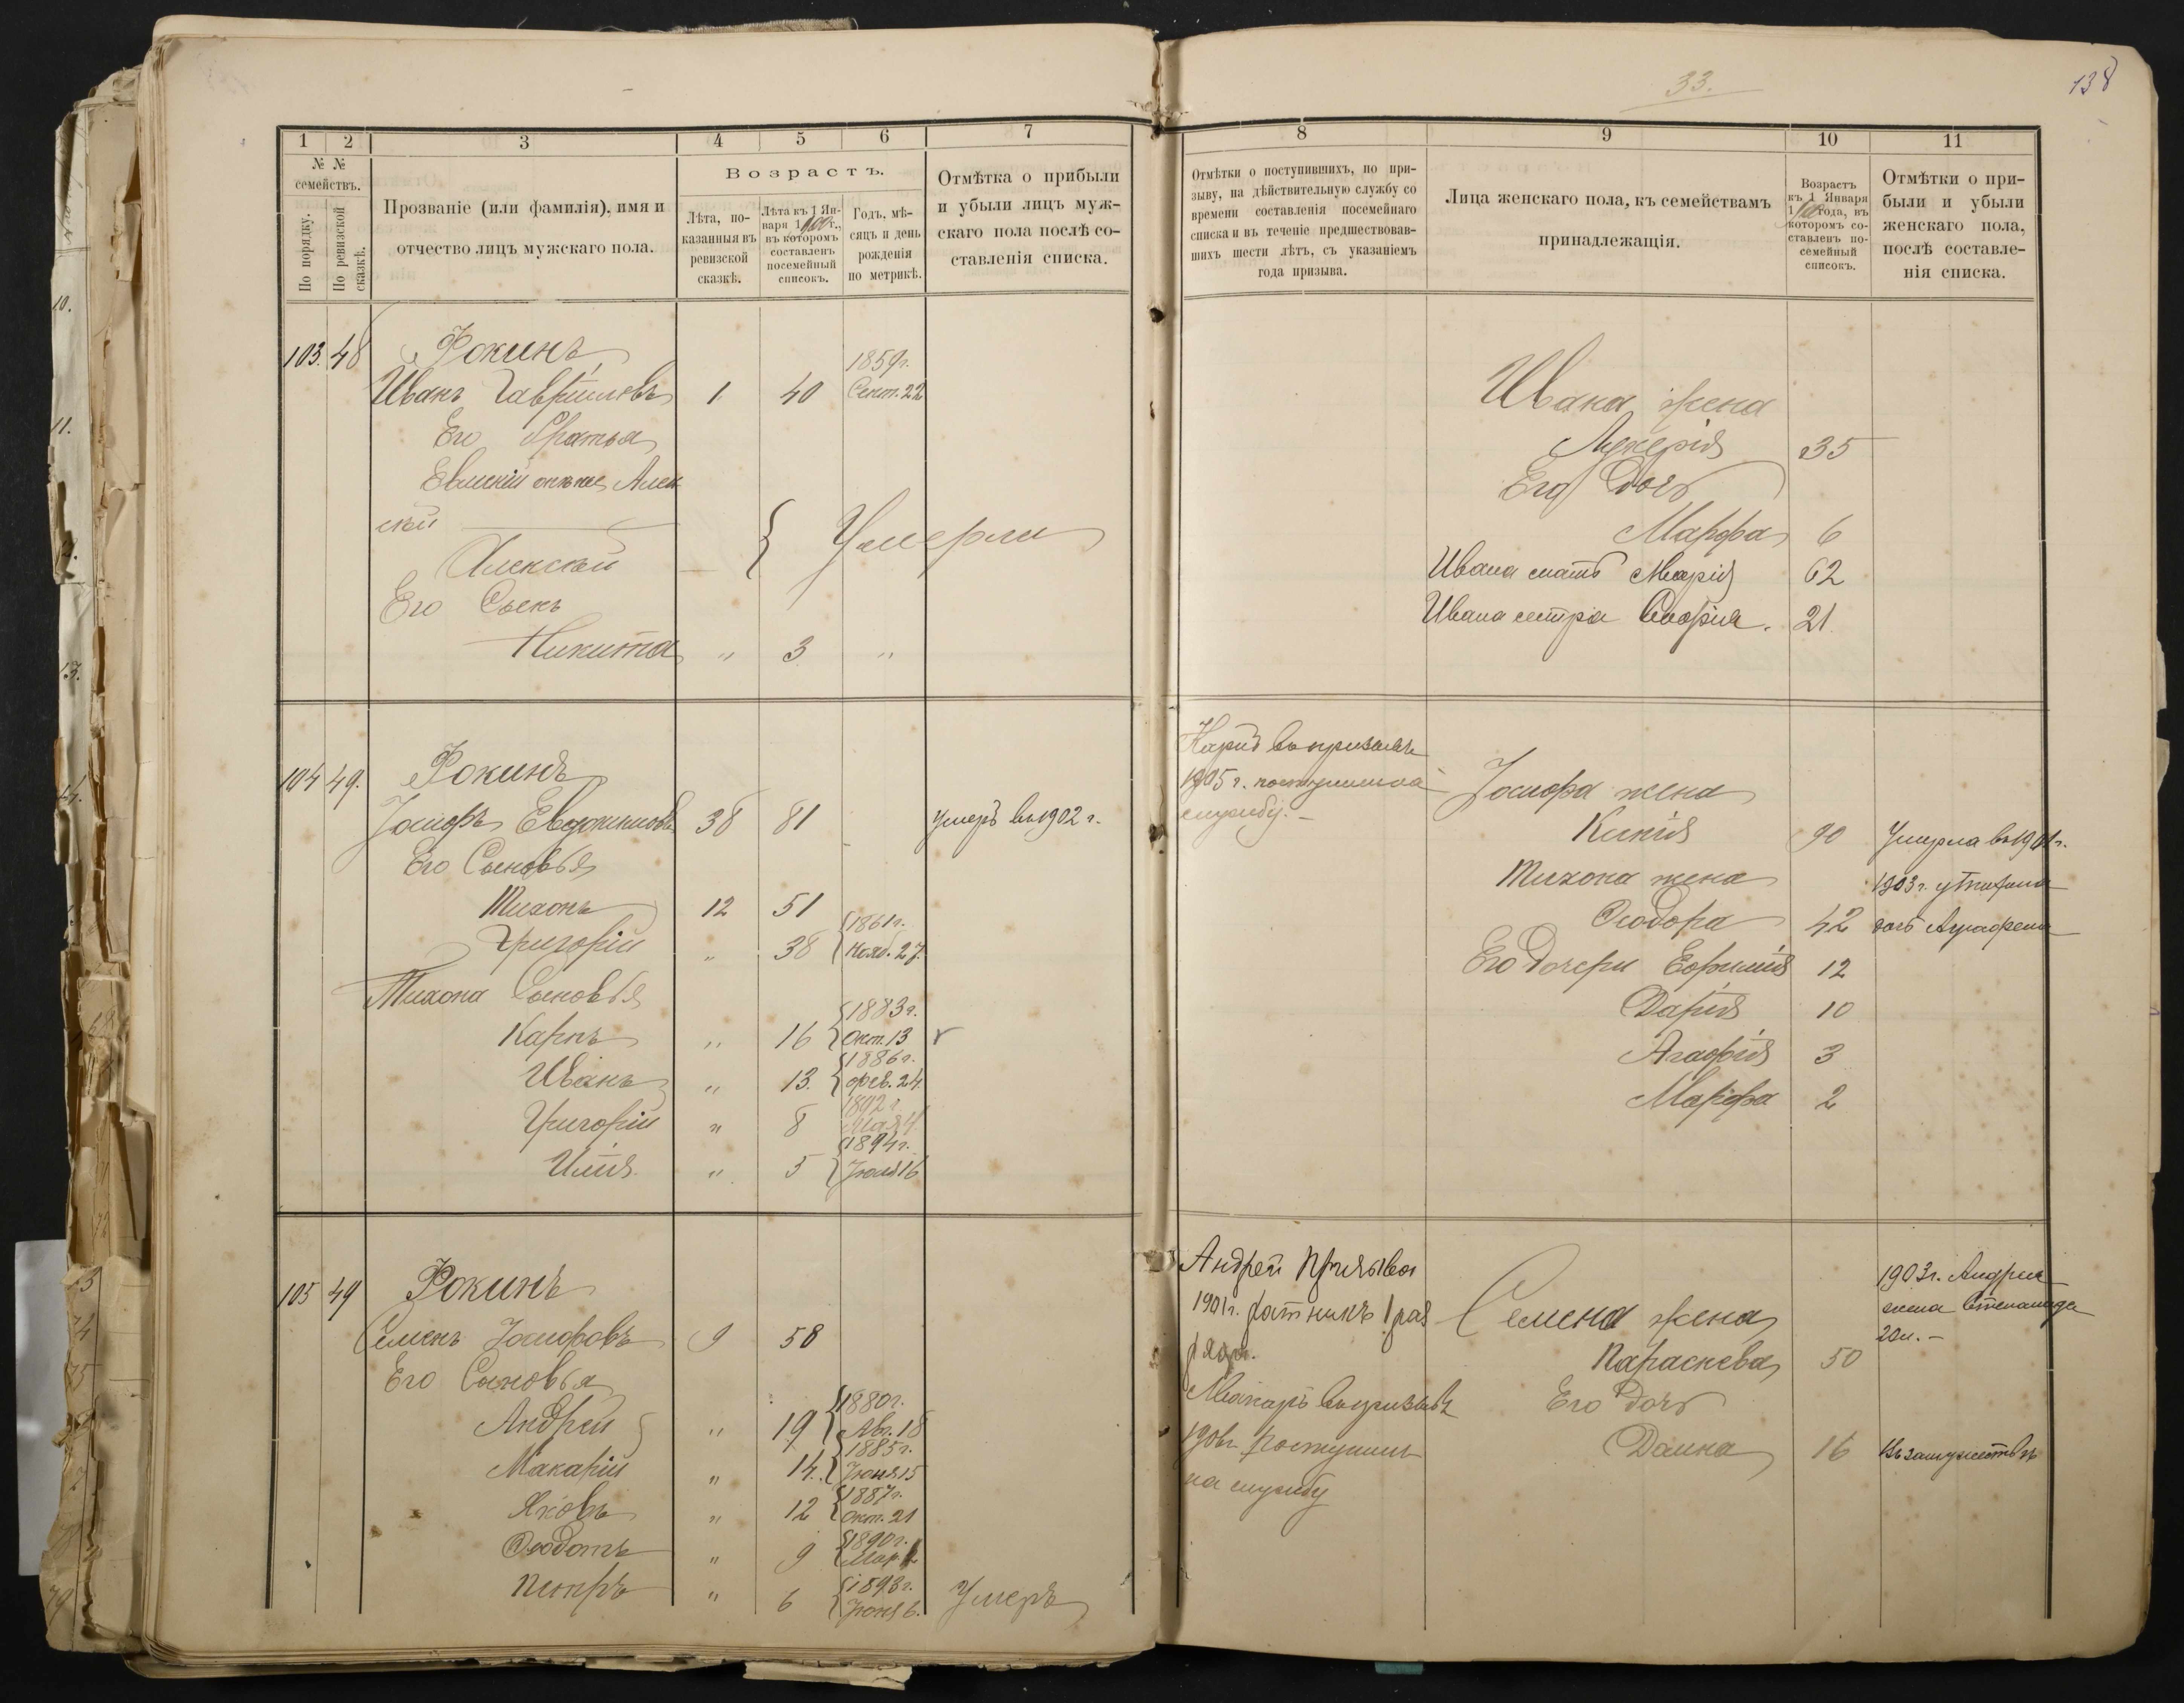 33.
138
1
2
3
4
5
6
7
№ №
семействъ.
По порядку.
По ревизской
сказкѣ.
Прозваніе (или фамилія), имя и
отчество лицъ мужскаго пола.
Возрастъ.
Лѣта, по-
казанныя въ
ревизской
сказкѣ.
Лѣта къ 1 Ян-
варя 1900 г.,
въ которомъ
составленъ
посемейный
списокъ.
Годъ, мѣ-
сяцъ и день
рожденія
по метрикѣ.
Отмѣтка о прибыли
и убыли лицъ муж-
скаго пола послѣ со-
ставленія списка.
103. 48 Фокинъ
1859 г.
Иванъ Гавриловъ 1 40 Сент. 22
Его братья
Алек
сѣй
Умерли
Алексѣй
Его Сынъ
Никита „ 3 „
104 49. Фокинъ
Іосифъ Евдокимовъ 38 81 умеръ въ 1902 г.
Его Сыновья
Тихонъ 12 51
1861 г.
Григорій „ 38 Нояб. 27.
Тихона Сыновья
1883 г.
Карпъ „ 16 Окт. 13
1886 г.
Иванъ „ 13. фев. 24.
1892 г.
Григорій „ 8 Мая 4
1894 г.
Илія „ 5 Іюля 16
105 49 Фокинъ
Семенъ Іосифовъ 9 58
Его Сыновья
1880 г.
Андрей „ 19 Авг. 18
1885 г.
Макарій „ 14. Іюня 15
1887 г.
Яковъ „ 12 Окт. 21
1890 г.
Ѳеодотъ „ 9 Мар.
1893 г.
Петръ „ 6 Іюня 6. Умеръ
8
9
10
11
Отмѣтки о поступившихъ, по при-
зыву, на дѣйствительную службу со
времени составленія посемейнаго
списка и въ теченіе предшествовав-
шихъ шести лѣтъ, съ указаніемъ
года призыва.
Лица женскаго пола, къ семействамъ
принадлежащія.
Возрастъ
къ 1 Января
1900 года, въ
которомъ со-
ставленъ по-
семейный
списокъ.
Отмѣтки о при-
были и убыли
женскаго пола,
послѣ составле-
нія списка.
Ивана жена
Лукерія 35
Его Дочь
Марфа 6
Ивана мать Марія 62
Ивана сестра 21
Карпъ въ призывъ
1905 г. поступилъ на
службу. –
Іосифа жена
90 Умерла въ 1901 г.
Тихона жена
1903 г. у Тихона
Ѳеодора 42 дочь Агрофена
Его Дочери Ефимія 12
Дарія 10
Агафія 3
Марфа 2
Андрей Призыва
1901 г. ратникъ 1 раз
ряда.
Макаръ въ призывъ
1906 г. поступилъ
на службу
Семена жена
Параскева 50
Его дочь
Домна 16 Въ замужествѣ
1903 г. Андрея
жена Степанида
20 л. –